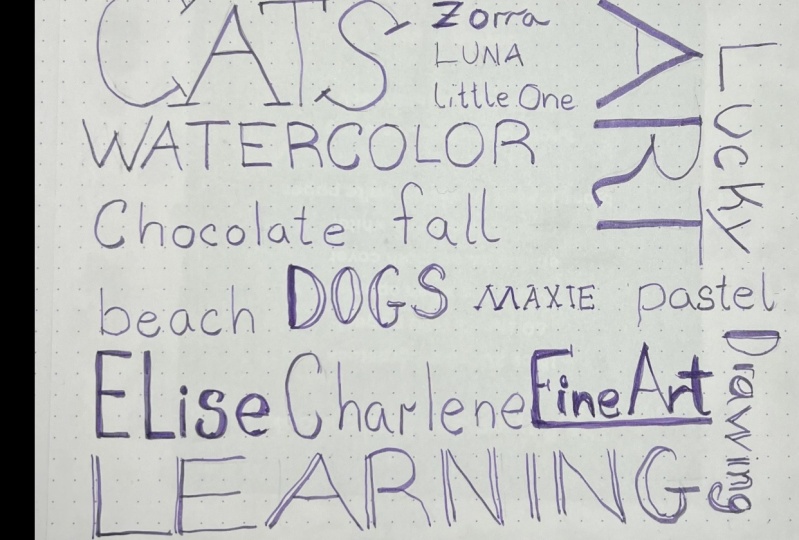 CATS
Zorra
LUNA
little One
ART
Lucky
WATERCOLOR
Chocolate fall
beach DOGS MAXIE pastel
ELise Charlene Fine Art
Drawing
LEARNING